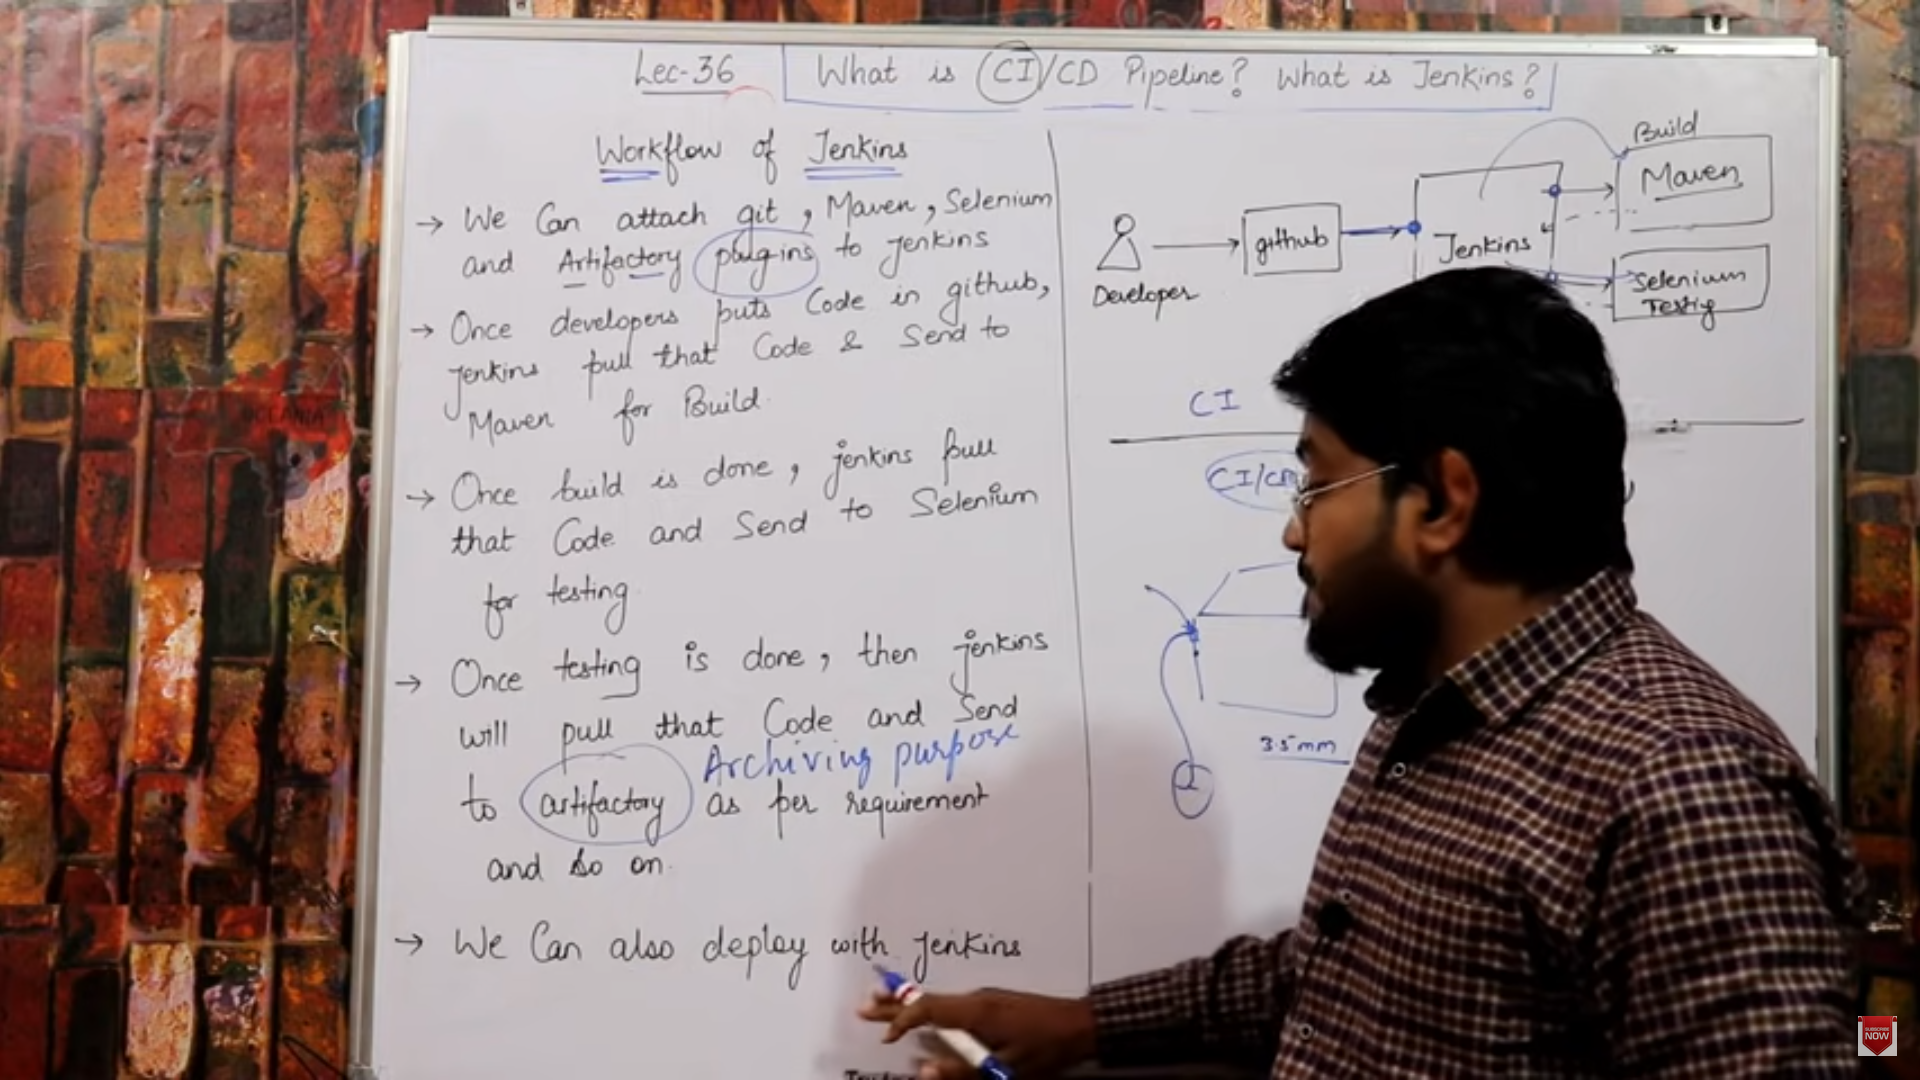 Lec-36 What is CI/CD Pipeline? What is Jenkins?
Workflow of Jenkins
→ We Can attach git, Maven, Selenium
and Artifactory plug-ins to jenkins
→ Once developers puts Code in github,
jenkins pull that Code & Send to
Maven for Build.
→ Once build is done, jenkins pull
that Code and Send to Selenium
for testing.
→ Once testing is done, then jenkins
will pull that Code and Send
Archiving purpose
to artifactory as per requirement
and so on.
→ We Can also deploy with jenkins
Developer
github
Jenkins
Build
Maven
Selenium
Testig
CI
CI/CD
3.5mm
SUBSCRIBE
NOW